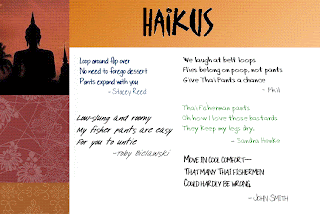 HAIKUS
Loop around flip over
No need to forego dessert
Pants expand with you
- Stacey Reed
Low-slung and roomy
My fisher pants are easy
For you to untie
- Toby Bielawski
We laugh at belt loops
Flies belong on poop, not pants
Give Thai Pants a chance
Thai Fisherman pants
Oh how I love those bastards
They keep my legs dry.
- Sandra
Move in cool comfort—
That many Thai fishermen
Could hardly be wrong.
- John Smith